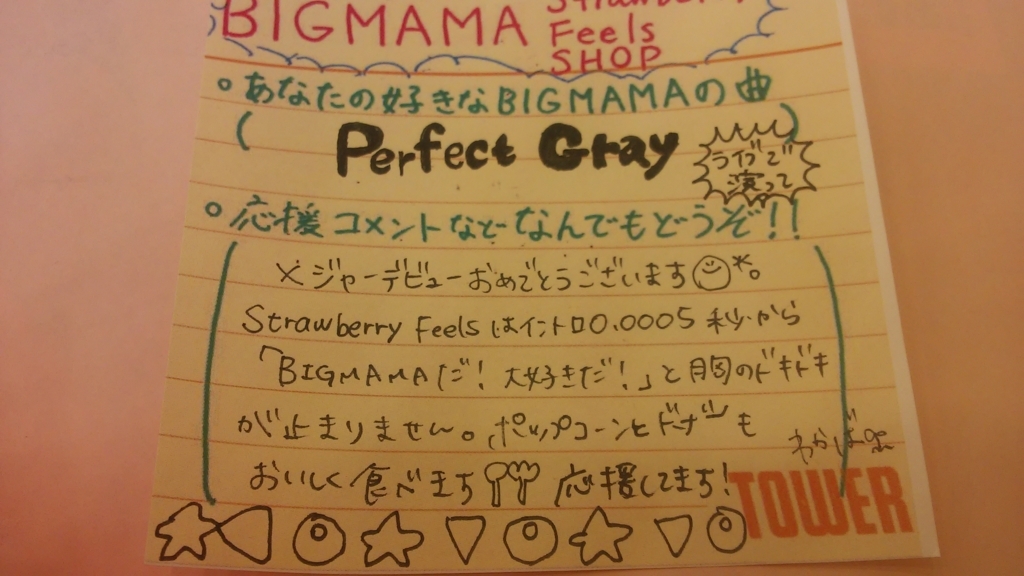 BIGMAMA Strawberry
Feels
SHOP
○あなたの好きなBIGMAMAの曲
( Perfect Gray )
ライブで
演って
○応援コメントなどなんでもどうぞ!!
メジャーデビューおめでとうございます☺*。
Strawberry Feelsはイントロ0.0005秒から
「BIGMAMAだ!大好きだ!」と胸のドキドキ
が止まりません。ポップコーンとドーナツも
おいしく食べまち 応援してまち!
わかば
TOWER